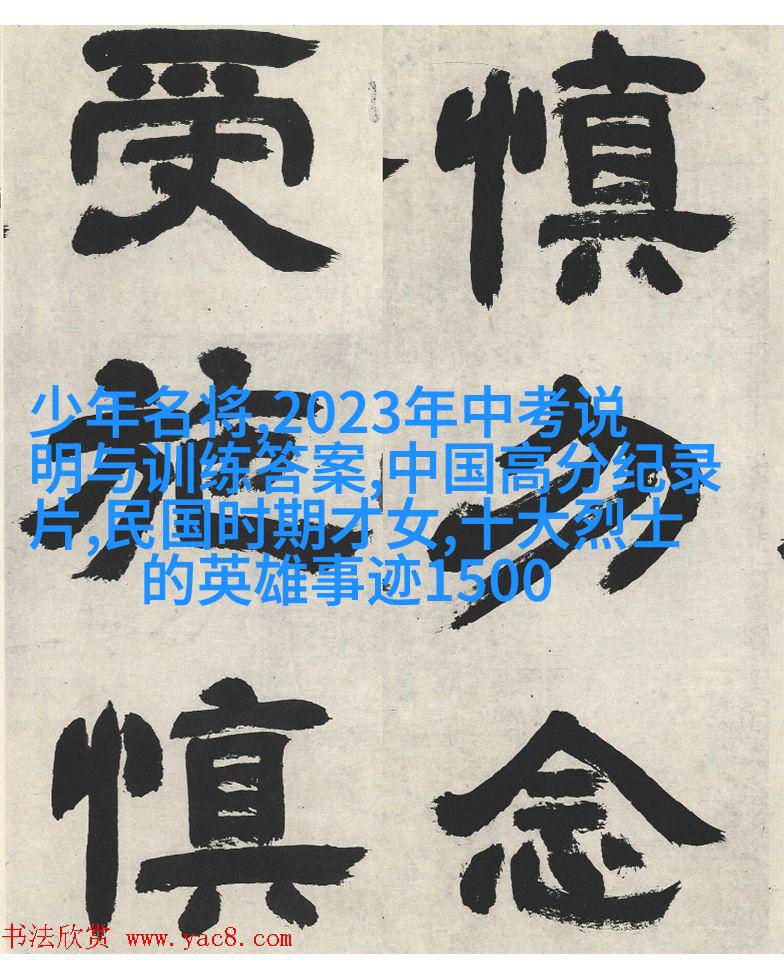 慎勿念
受施慎
少年名将,2023年中考说
明与训练答案,中国高分纪录
片,民国时期才女,十大烈士
的英雄事迹1500
书法欣赏 www.yac8.com